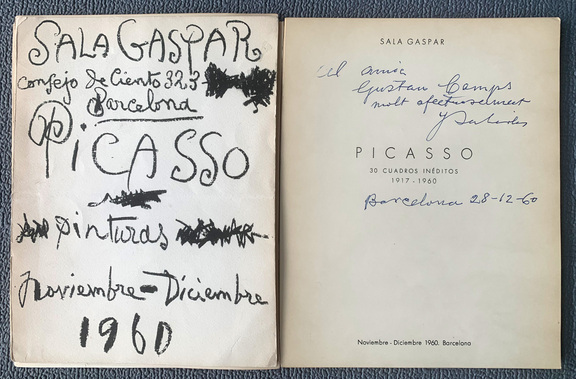 SALA GASPAR
Consejo de Ciento 323
Barcelona
PICASSO
pinturas
Noviembre-Diciembre
1960
SALA GASPAR
amic
Gustau Camps
molt afectuosament
PICASSO
30 CUADROS INÉDITOS
1917 - 1960
Barcelona 28-12-60
Noviembre - Diciembre 1960. Barcelona